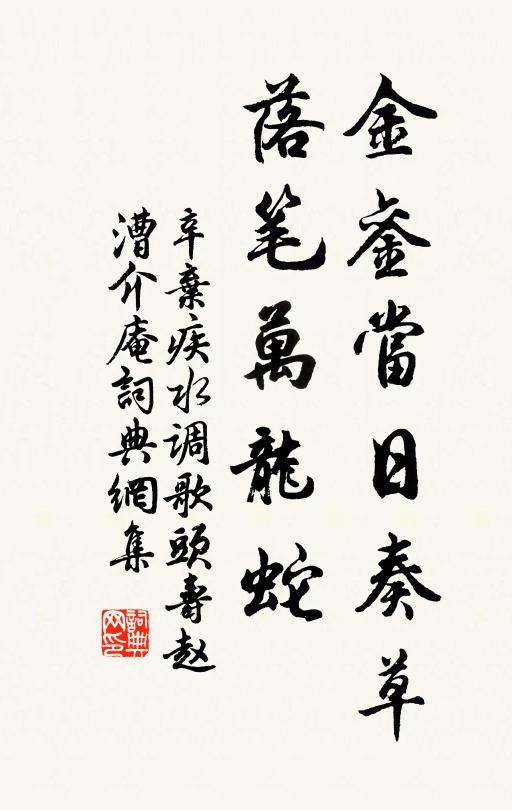 金銮當日奏草
落笔萬龍蛇
辛棄疾水调歌頭壽赵
漕介庵詞典網集
詞典网印